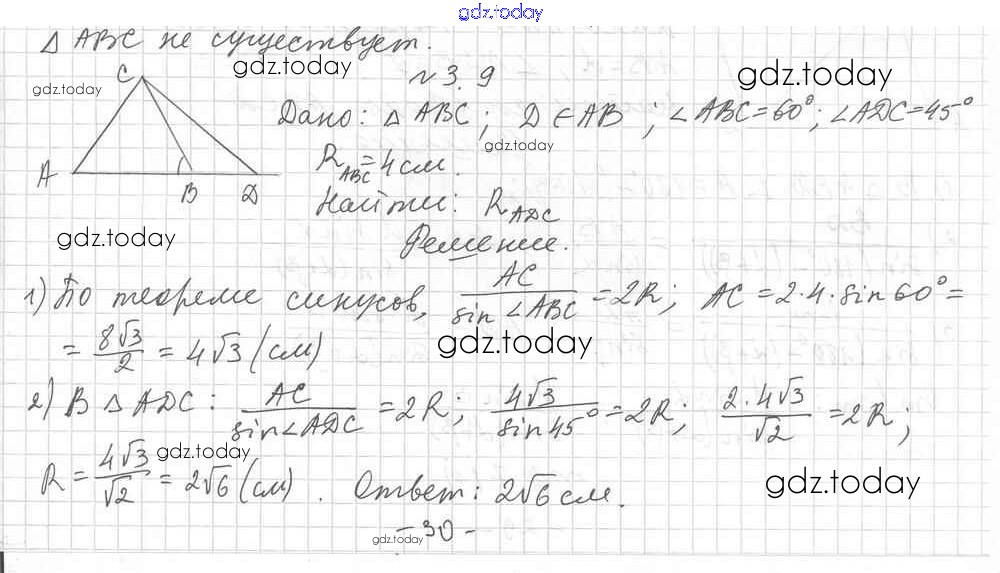 gdz.today
Δ ABC не существует.
gdz.today
gdz.today
gdz.today
№ 3.9
C
A
B
D
Дано: Δ ABC; D ∈ AB; ∠ABC=60°; ∠ADC=45°
gdz.today
R_ABC=4 см.
Найти: R_ADC
gdz.today
Решение.
1) По теореме синусов, AC/sin∠ABC = 2R; AC = 2·4·sin60° =
= 8√3/2 = 4√3 (см)
gdz.today
2) В Δ ADC: AC/sin∠ADC = 2R; 4√3/sin45° = 2R; 2·4√3/√2 = 2R;
gdz.today
R = 4√3/√2 = 2√6 (см). Ответ: 2√6 см.
gdz.today
gdz.today
- 30 -